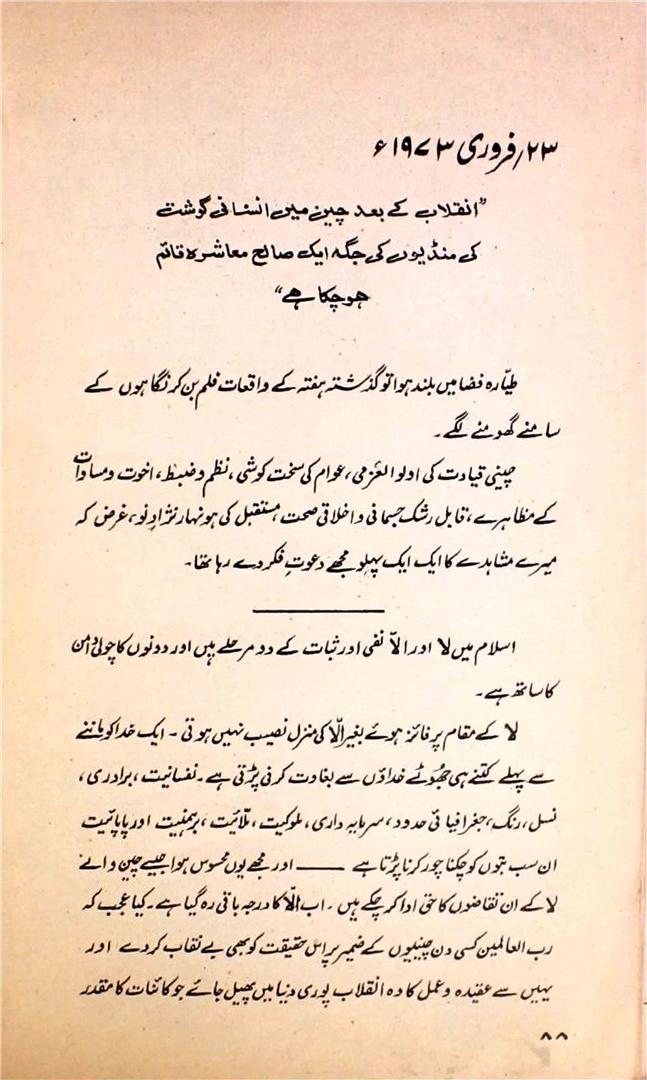 ۲۳/فروری ۱۹۷۳ء
"انقلاب کے بعد چین میں انسانی گوشت
کی منڈیوں کی جگہ ایک صالح معاشرہ قائم
ہوچکا ہے"
طیّارہ فضا میں بلند ہوا تو گذشتہ ہفتہ کے واقعات فلم بن کر نگاہوں کے
سامنے گھومنے لگے۔
چینی قیادت کی اولوالعزمی، عوام کی سخت کوشی، نظم و ضبط، اخوت و مساوات
کے مظاہرے، قابل رشک جسمانی و اخلاقی صحت، مستقبل کی ہونہار نژادِ نو، غرض کہ
میرے مشاہدے کا ایک ایک پہلو مجھے دعوتِ فکر دے رہا تھا۔
اسلام میں لا اور الّا نفی اور ثبات کے دو مرحلے ہیں اور دونوں کا چولی دامن
کا ساتھ ہے۔
لا کے مقام پر فائز ہوئے بغیر الّا کی منزل نصیب نہیں ہوتی ۔ ایک خدا کو ماننے
سے پہلے کتنے ہی جھُوٹے خداؤں سے بغاوت کرنی پڑتی ہے۔ نفسانیت، برادری،
نسل، رنگ، جغرافیائی حدود، سرمایہ داری، ملوکیت، ملّائیت، برہمنیت اور پاپائیت
ان سب بتوں کو چکنا چور کرنا پڑتا ہے ــــــ اور مجھے یوں محسوس ہوا جیسے چین والے
لا کے ان تقاضوں کا حق ادا کر چکے ہیں ۔ اب الّا کا درجہ باقی رہ گیا ہے۔ کیا عجب کہ
رب العالمین کسی دن چینیوں کے ضمیر پر اس حقیقت کو بھی بے نقاب کر دے اور
یہیں سے عقیدہ و عمل کا وہ انقلاب پوری دنیا میں پھیل جائے جو کائنات کا مقدر
۸۸